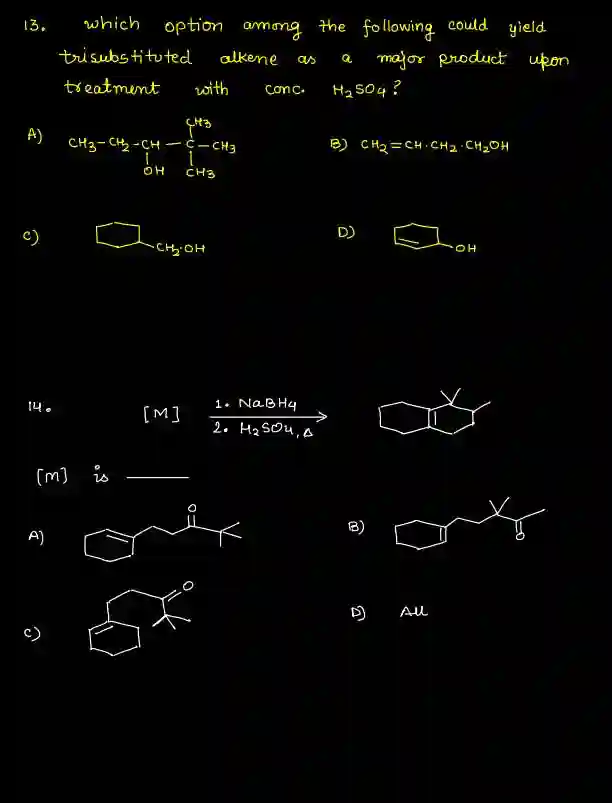 13. which option among the following could yield
trisubstituted alkene as a major product upon
treatment with conc. H2SO4?
CH3
A) CH3-CH2-CH-C-CH3
OH CH3
B) CH2=CH.CH2.CH2OH
C) CH2.OH
D) OH
14. [M] 1. NaBH4
2. H2SO4, Δ
[M] is ———
A) O
B) O
C) O
D) All